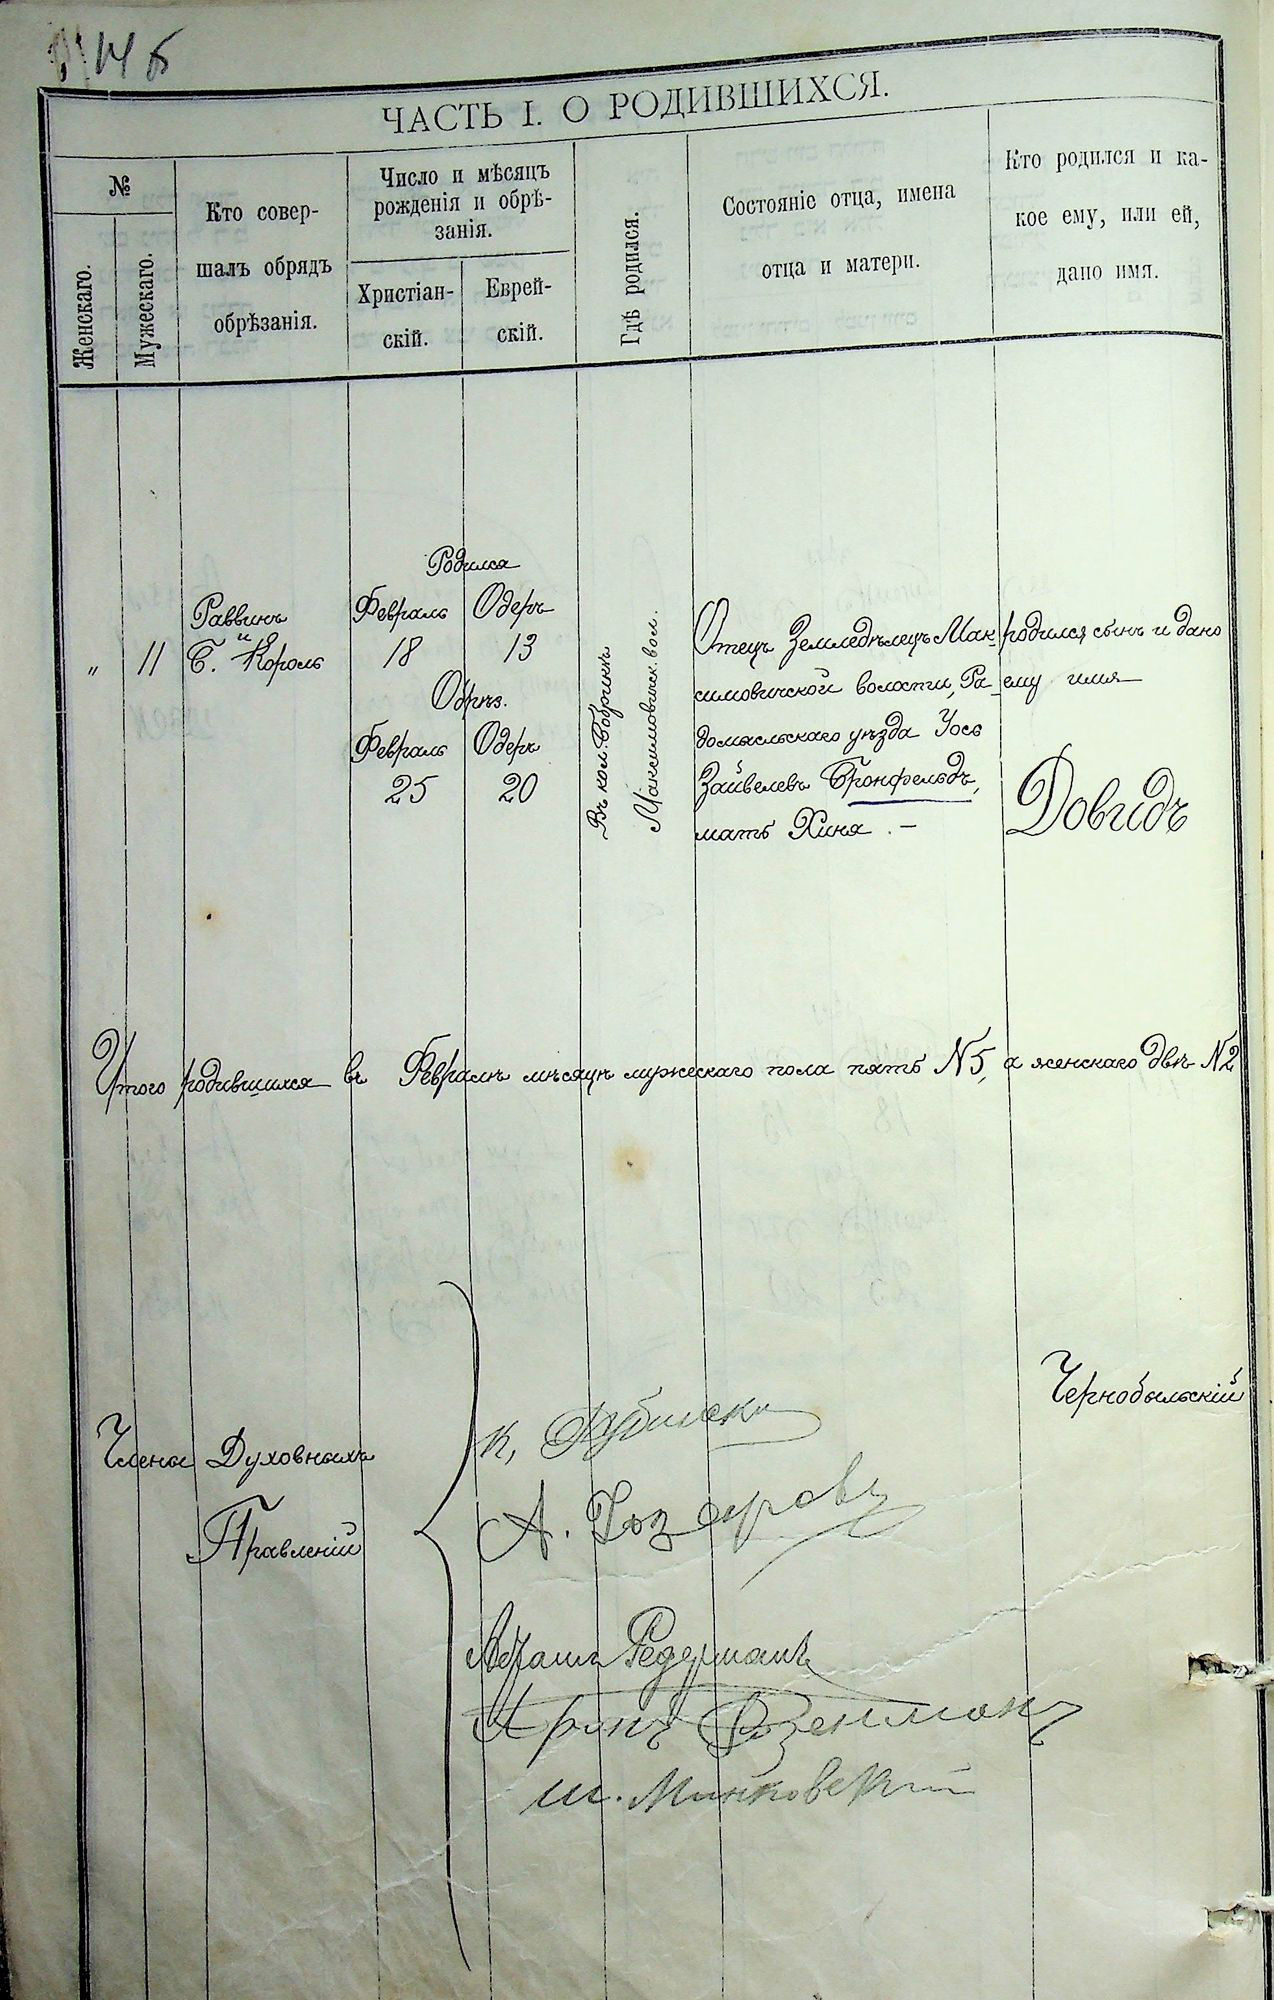 14 б
ЧАСТЬ I. О РОДИВШИХСЯ.
№
Женскаго.
Мужескаго.
Кто совер-
шалъ обрядъ
обрѣзанія.
Число и мѣсяцъ
рожденія и обрѣ-
занія.
Христіан-
скій.
Еврей-
скій.
Гдѣ родился.
Состояніе отца, имена
отца и матери.
Кто родился и ка-
кое ему, или ей,
дано имя.
"
11
Раввинъ
и
Б. Король
Родился
Февраль Одеръ
18 13
Обрѣз.
Февраль Одеръ
25 20
Въ кол. Бобринкѣ
Максимовичск. вол.
Отецъ Земледѣлецъ Мак-
симовичской волости, Ра-
домысльскаго уѣзда Уось
Зайвелевъ Бронфельдъ,
мать Хиня. —
родился сынъ и дано
ему имя
Довидъ
Итого родившихся въ Февралѣ мѣсяцѣ мужескаго пола пять № 5, а женскаго двѣ № 2
Чернобыльскій
Члены Духовныхъ
Правленій
К. Дубински
А.
Абрамъ Редерманъ
Аронъ Розенманъ
Ш. Минковскій